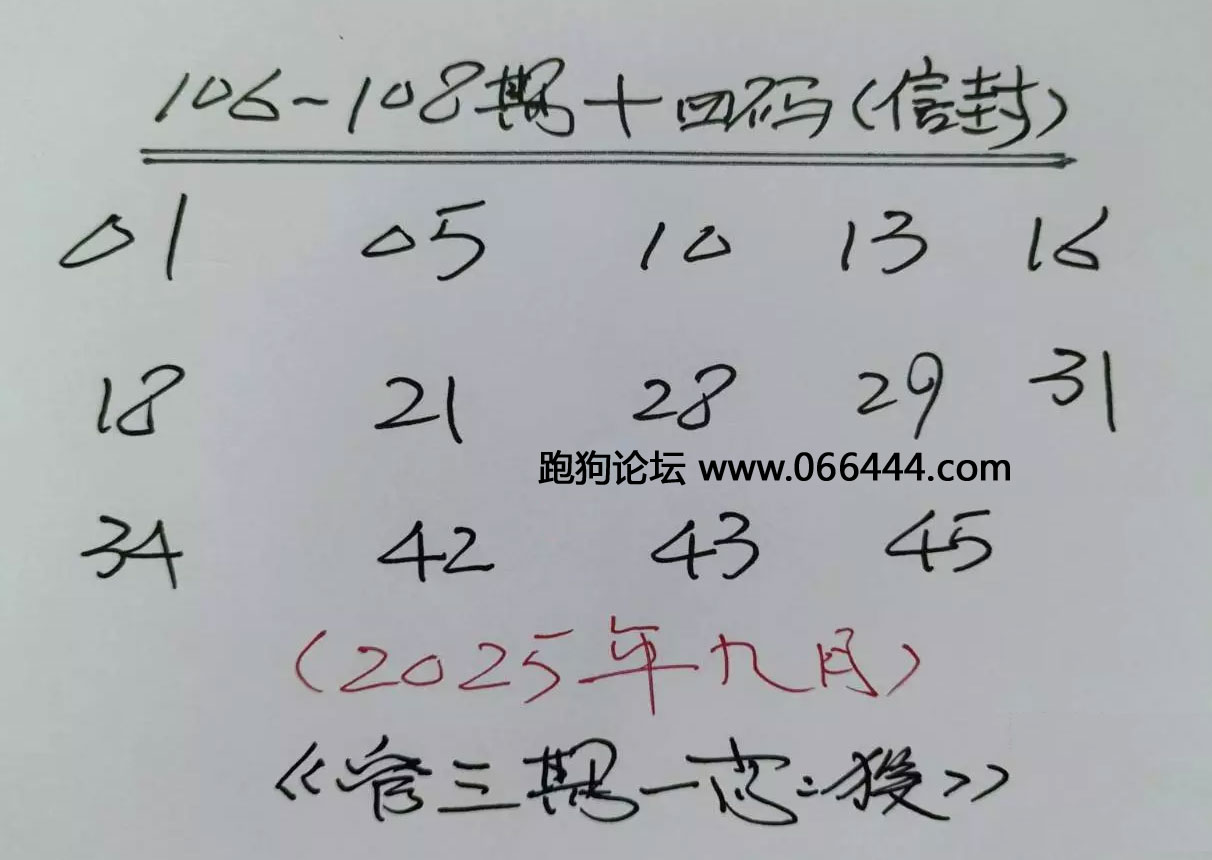 106~108期十四码(信封)
01 05 10 13 16
18 21 28 29 31
跑狗论坛 www.066444.com
34 42 43 45
(2025年九月)
《管三期一肖:猴》